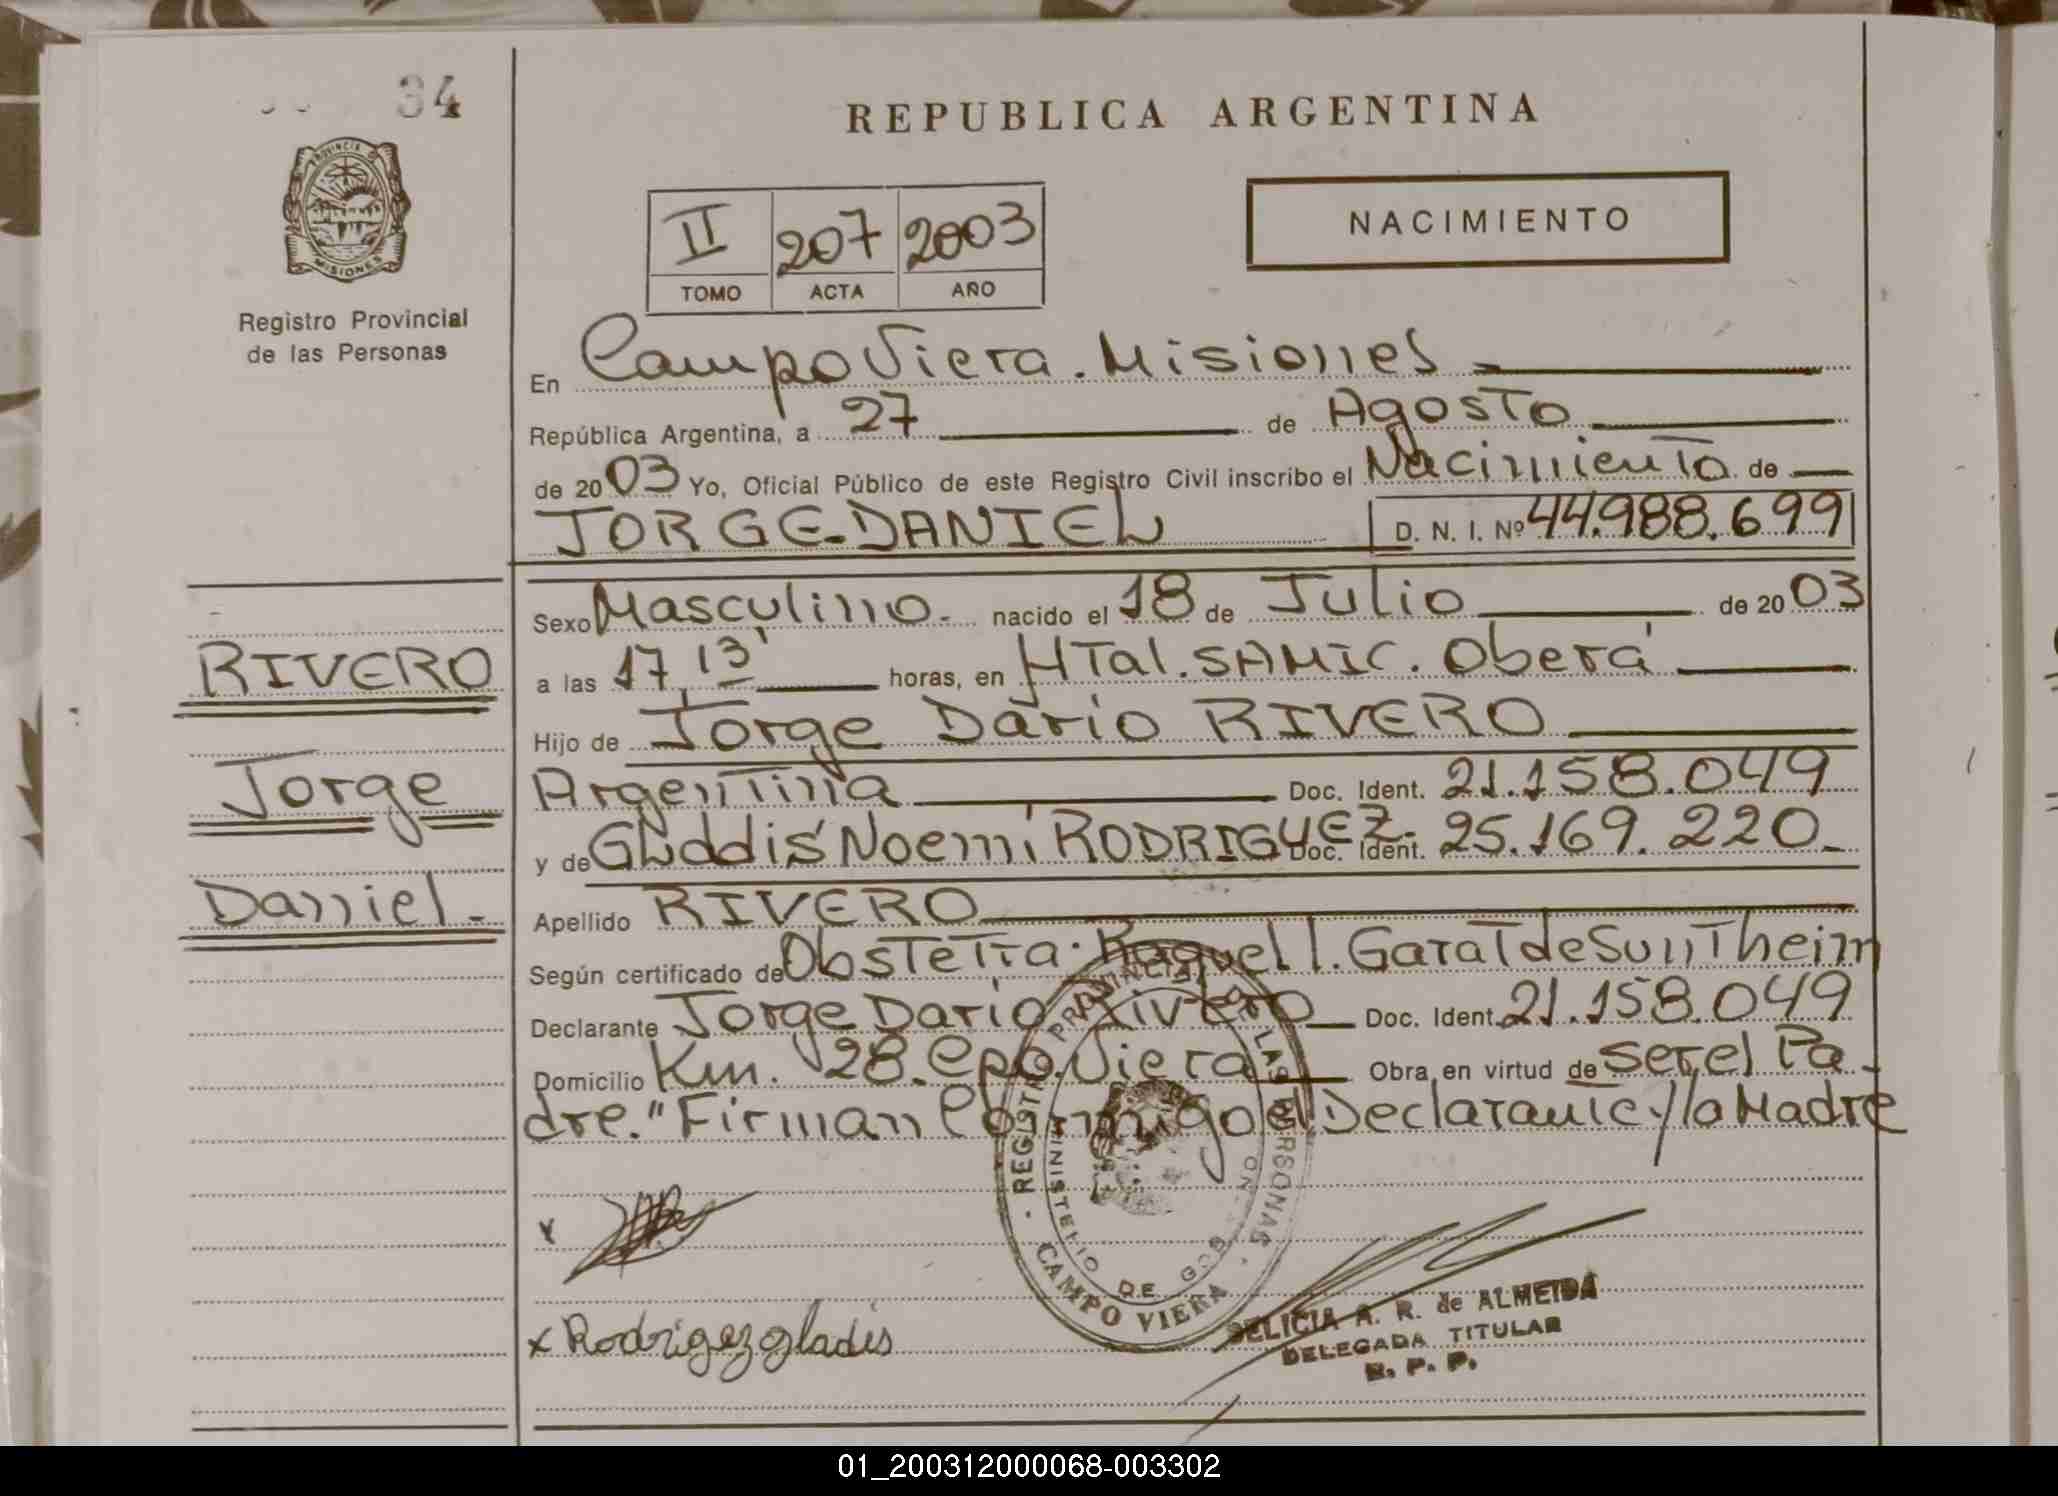 34
PROVINCIA DE
MISIONES
Registro Provincial
de las Personas
REPUBLICA ARGENTINA
II 207 2003
TOMO ACTA AÑO
NACIMIENTO
En Campo Viera. Misiones
República Argentina, a 27 de Agosto
de 2003 Yo, Oficial Público de este Registro Civil inscribo el Nacimiento de
JORGE DANIEL D. N. I. Nº 44.988.699
Sexo Masculino. nacido el 18 de Julio de 2003
RIVERO
a las 17,13' horas, en HTal. SAMIC. Oberá
Hijo de Jorge Dario RIVERO
Jorge
Argentina Doc. Ident. 21.158.049
y de Gladdis Noemí RODRIGUEZ. Doc. Ident. 25.169.220
Daniel.
Apellido RIVERO
Según certificado de Obstetra. Raquel I. Garat de Suntheim
Declarante Jorge Dario Rivero Doc. Ident. 21.158.049
Domicilio Km. 28. Cpo. Viera Obra en virtud de ser el Pa-
dre." Firman Conmigo el Declarante y la Madre
REGISTRO PROVINCIAL DE LAS PERSONAS
MINISTERIO DE GOB
CAMPO VIERA
x
x Rodrigez gladis
DELICIA A. R. de ALMEIDA
DELEGADA TITULAR
R. P. P.
01_200312000068-003302